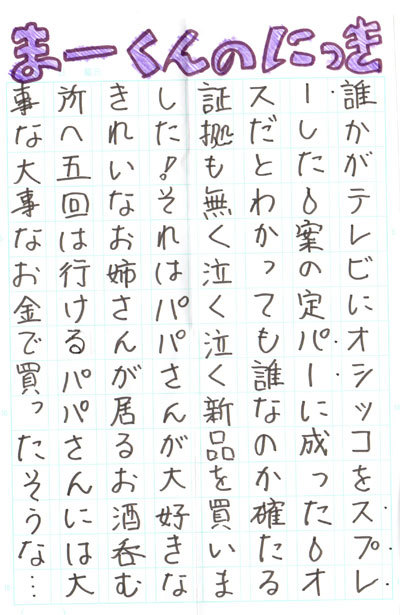 まーくんのにっき
誰かがテレビにオシッコをスプレ
ーした。案の定パーに成った。オ
スだとわかっても誰なのか確たる
証拠も無く泣く泣く新品を買いま
した!それはパパさんが大好きな
きれいなお姉さんが居るお酒呑む
所へ五回は行けるパパさんには大
事な大事なお金で買ったそうな…